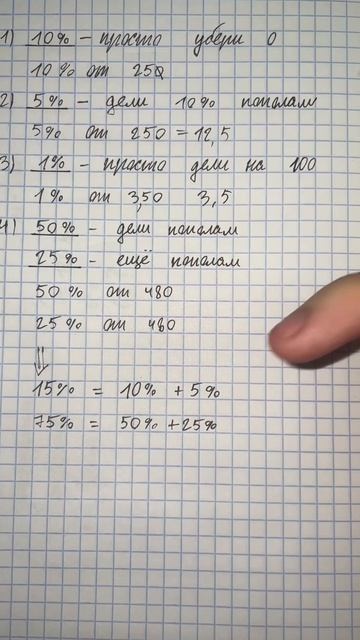 1) 10% - просто убери 0
10% от 250
2) 5% - дели 10% пополам
5% от 250 = 12,5
3) 1% - просто дели на 100
1% от 3,50 3,5
4) 50% - дели пополам
25% - ещё пополам
50% от 480
25% от 480
⇓
15% = 10% + 5%
75% = 50% + 25%